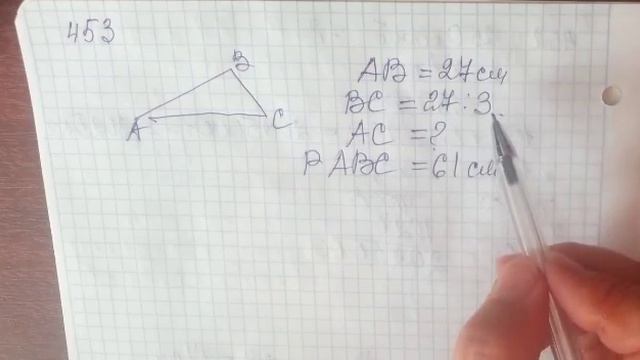 453
B
A
C
AB = 27 см
BC = 27 : 3
AC = ?
P ABC = 61 см